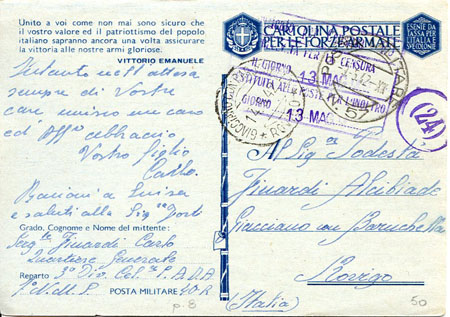 Unito a voi come non mai sono sicuro che
il vostro valore ed il patriottismo del popolo
italiano sapranno ancora una volta assicurare
la vittoria alle nostre armi gloriose.
VITTORIO EMANUELE
CARTOLINA POSTALE
PER LE FORZE ARMATE
ESENTE DA
TASSA PER
L'ITALIA E
CENSURA
IL GIORNO
13 MAG
RESTITUITA ALLE POSTE PER L'INOLTRO
IL GIORNO 13 MAG
24
Intanto nell'attesa
sempre di Vostre
care, invio un caro
ed Aff° abbraccio
Vostro figlio
Carlo
Bacioni a Luisa
e saluti alla Sig
Grado, Cognome e Nome del mittente:
Serg Finardi Carlo
Quartiere Generale
Reparto 3ª Div. Cel.
POSTA MILITARE 40 R
p. 8
Al Sig Podestà
Finardi Alcibiade
Giacciano con Baruchella
Rovigo
(Italia)
50